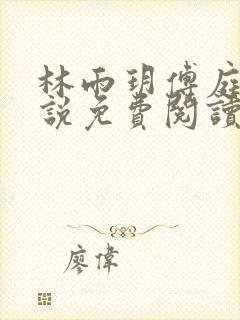 林雨玥傅庭
說免費閱讀
廖偉